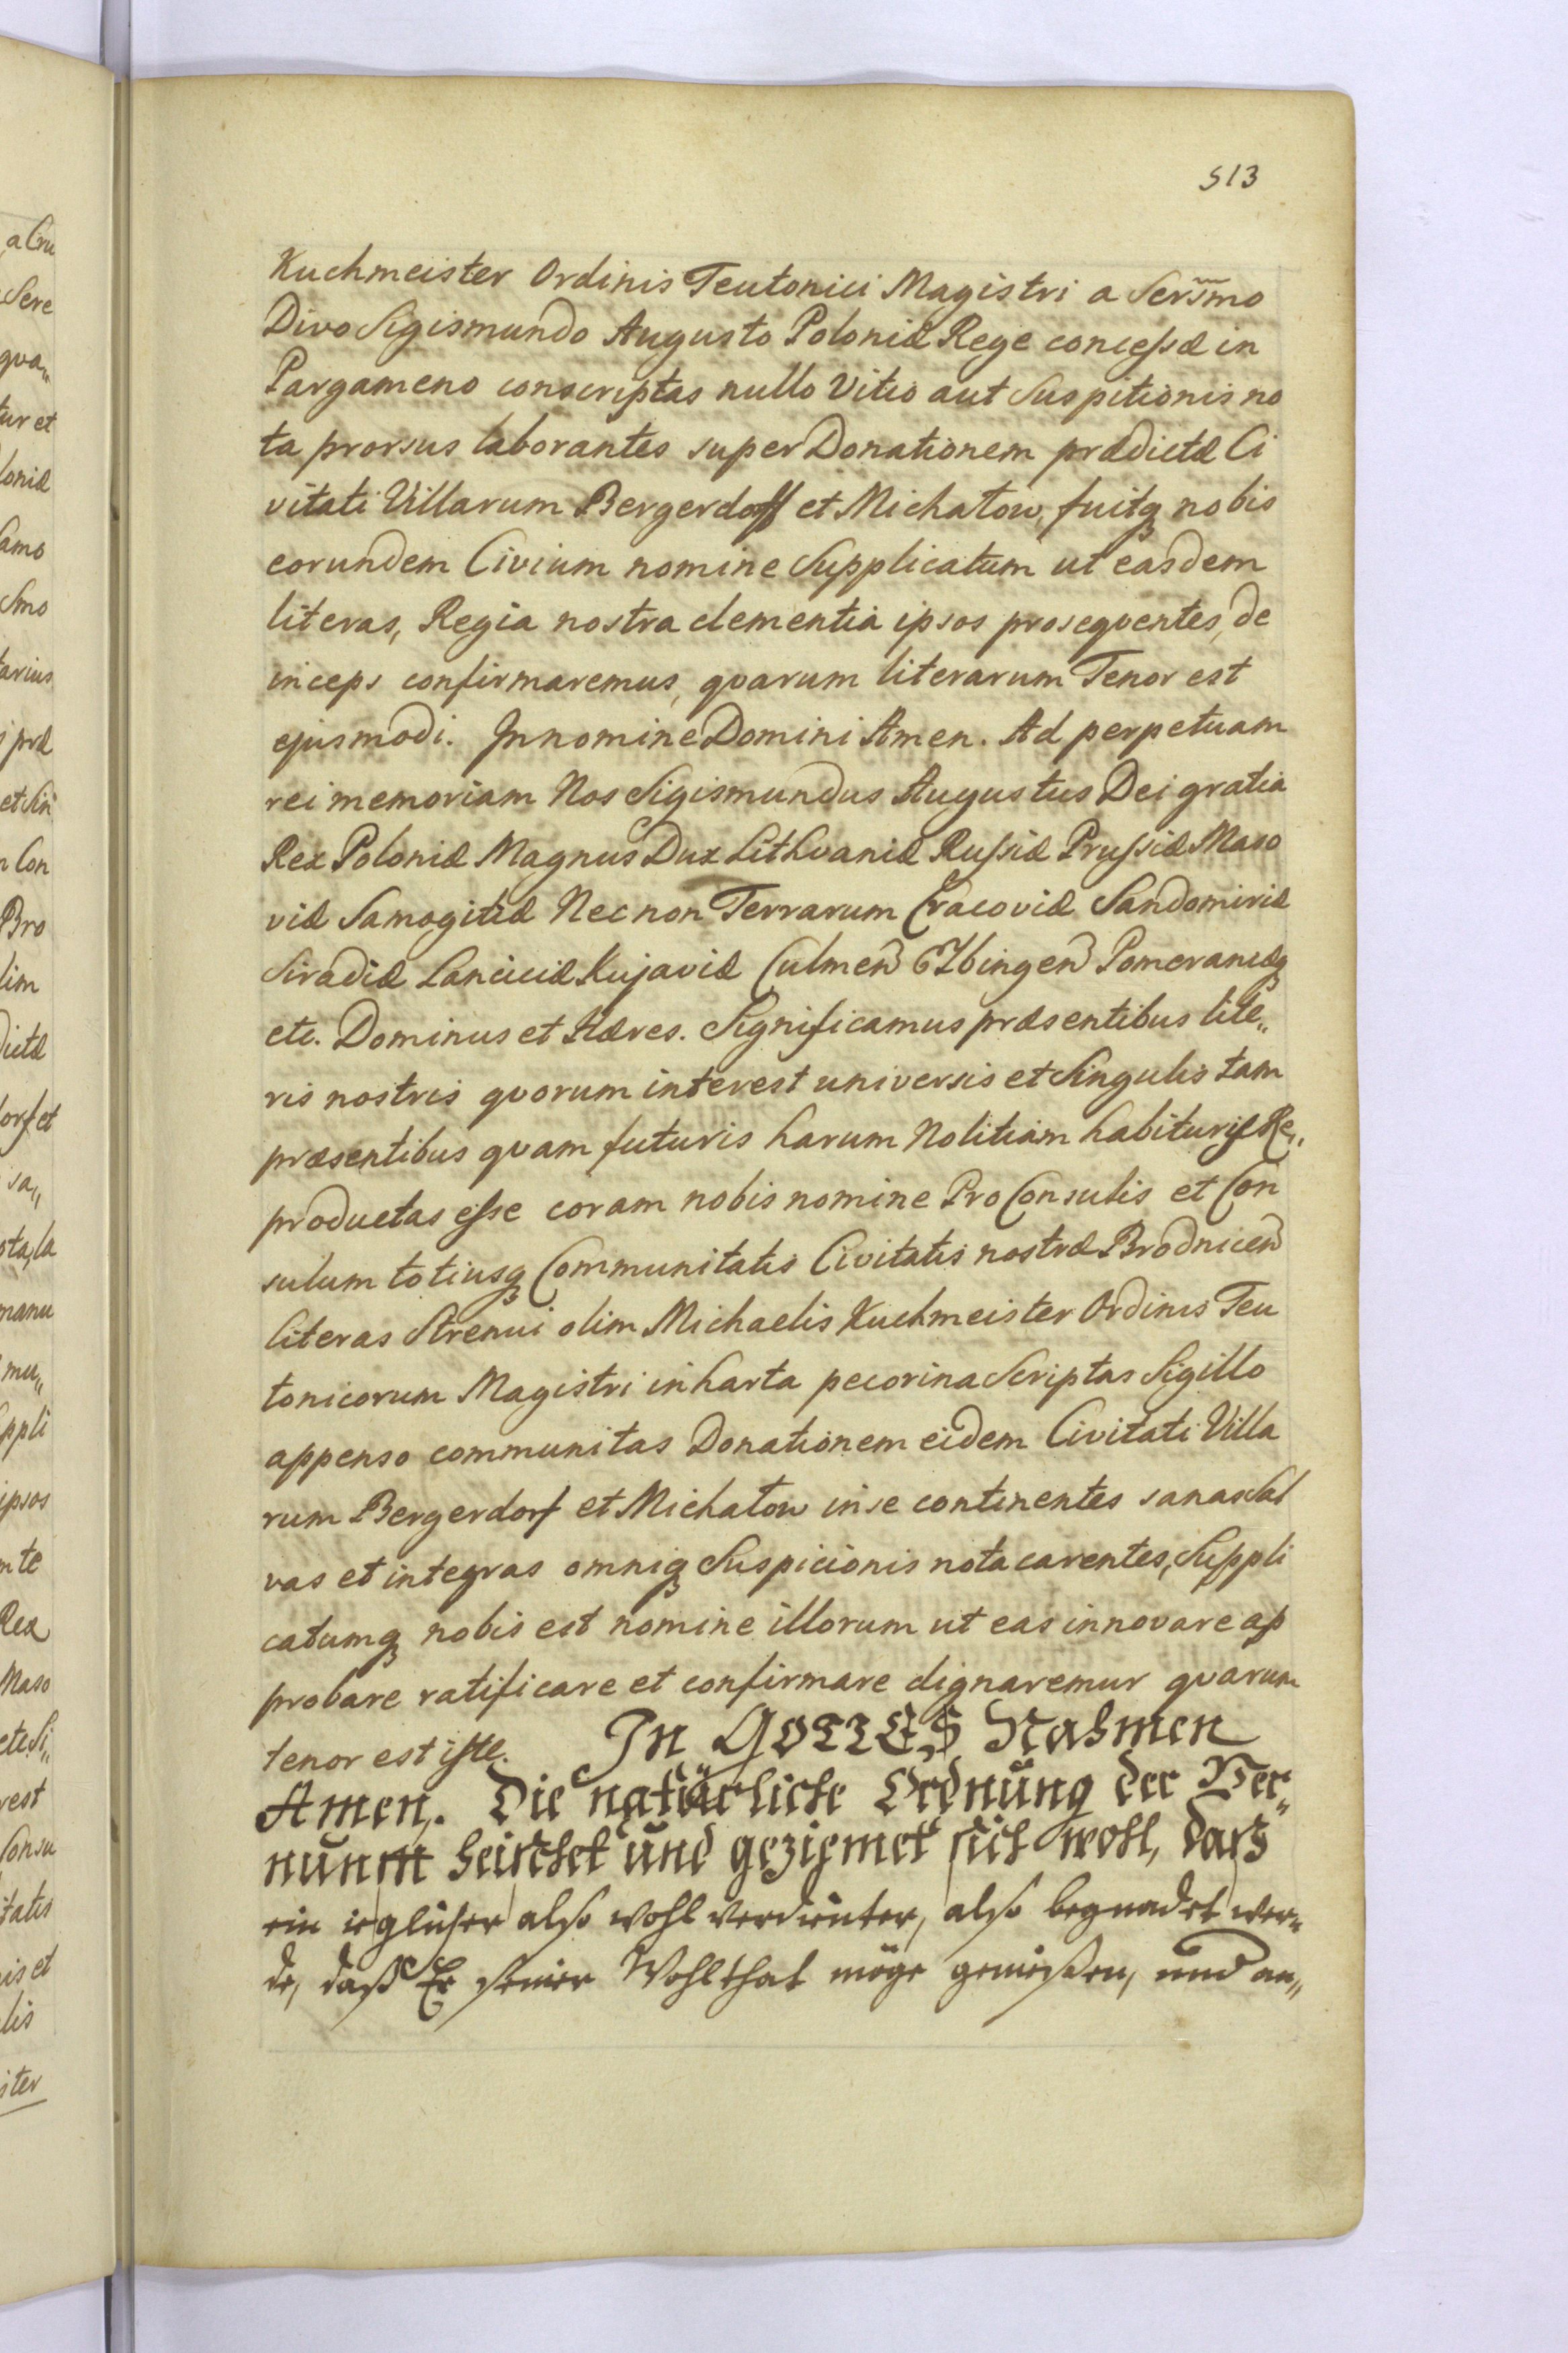 513
Kuchmeister Ordinis Teutonici Magistri a Serssmo
Divo Sigismundo Augusto Poloniæ Rege concessæ in
Pargameno conscriptas nullo Vitio aut Suspitionis no
ta prorsus laborantes super Donationem prædictæ Ci
vitati Villarum Bergerdoff et Michatow, fuitq nobis
eorundem Civium nomine Supplicatum ut easdem
literas, Regia nostra clementia ipsos proseqventes, de
inceps confirmaremus, qvarum literarum Tenor est
ejusmodi. In nomine Domini Amen. Ad perpetuam
rei memoriam Nos Sigismundus Augustus Dei gratia
Rex Poloniæ Magnus Dux Lithvaniæ Russiæ Prussiæ Maso
viæ Samogitiæ Nec non Terrarum Cracoviæ Sandomiriæ
Siradiæ Lanciciæ Kujaviæ Culmen Elbingen Pomeraniæq
etc. Dominus et Hæres. Significamus præsentibus lite„
ris nostris qvorum interest universis et Singulis tam
præsentibus qvam futuris harum Notitiam habituris Re„
productas esse coram nobis nomine Pro Consulis et Con
sulum totiusq Communitatis Civitatis nostræ Brodnicen
literas Strenui olim Michaelis Kuchmeister Ordinis Teu
tonicorum Magistri in harta pecorina Scriptas Sigillo
appenso communitas Donationem eidem Civitati Villa
rum Bergerdorf et Michatow in se continentes sanas Sal
vas et integras omniq Suspicionis nota carentes, Suppli
catumq nobis est nomine illorum ut eas innovare ap
probare ratificare et confirmare dignaremur qvarum
tenor est iste. In GOTTES Nahmen
Amen. Die natüerliche Ordnung der Ver„
nunft heischet und geziemet sich wohl, dass
ein ieglicher also wohl verdienter, also begnadet wer„
de, daß Er seiner Wohlthat möge genießen, und an„
a Cru
Sere
qva„
tur et
loniæ
Smo
tarius
præ
et Sin
n Con
Bro
lim
dictæ
dorf et
sa„
ota, la
manu
mu„
ppli
ipsos
nte
Rex
Maso
etc Si„
rest
Consu
itatis
nis et
lis
ister